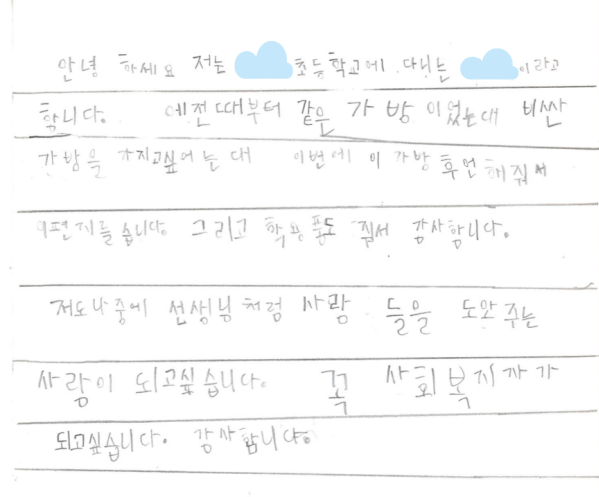 안녕 하세요 저는 초등학교에 다니는 이라고
합니다. 예전때부터 같은 가방이었는대 비싼
가방을 가지고싶어는대 이번에 이 가방 후원해줘서
이편지를 씁니다. 그리고 학용품도 줘서 감사합니다.
저도나중에 선생님처럼 사람들을 도와주는
사람이 되고싶습니다. 꼭 사회복지자가
되고싶습니다. 감사합니다.